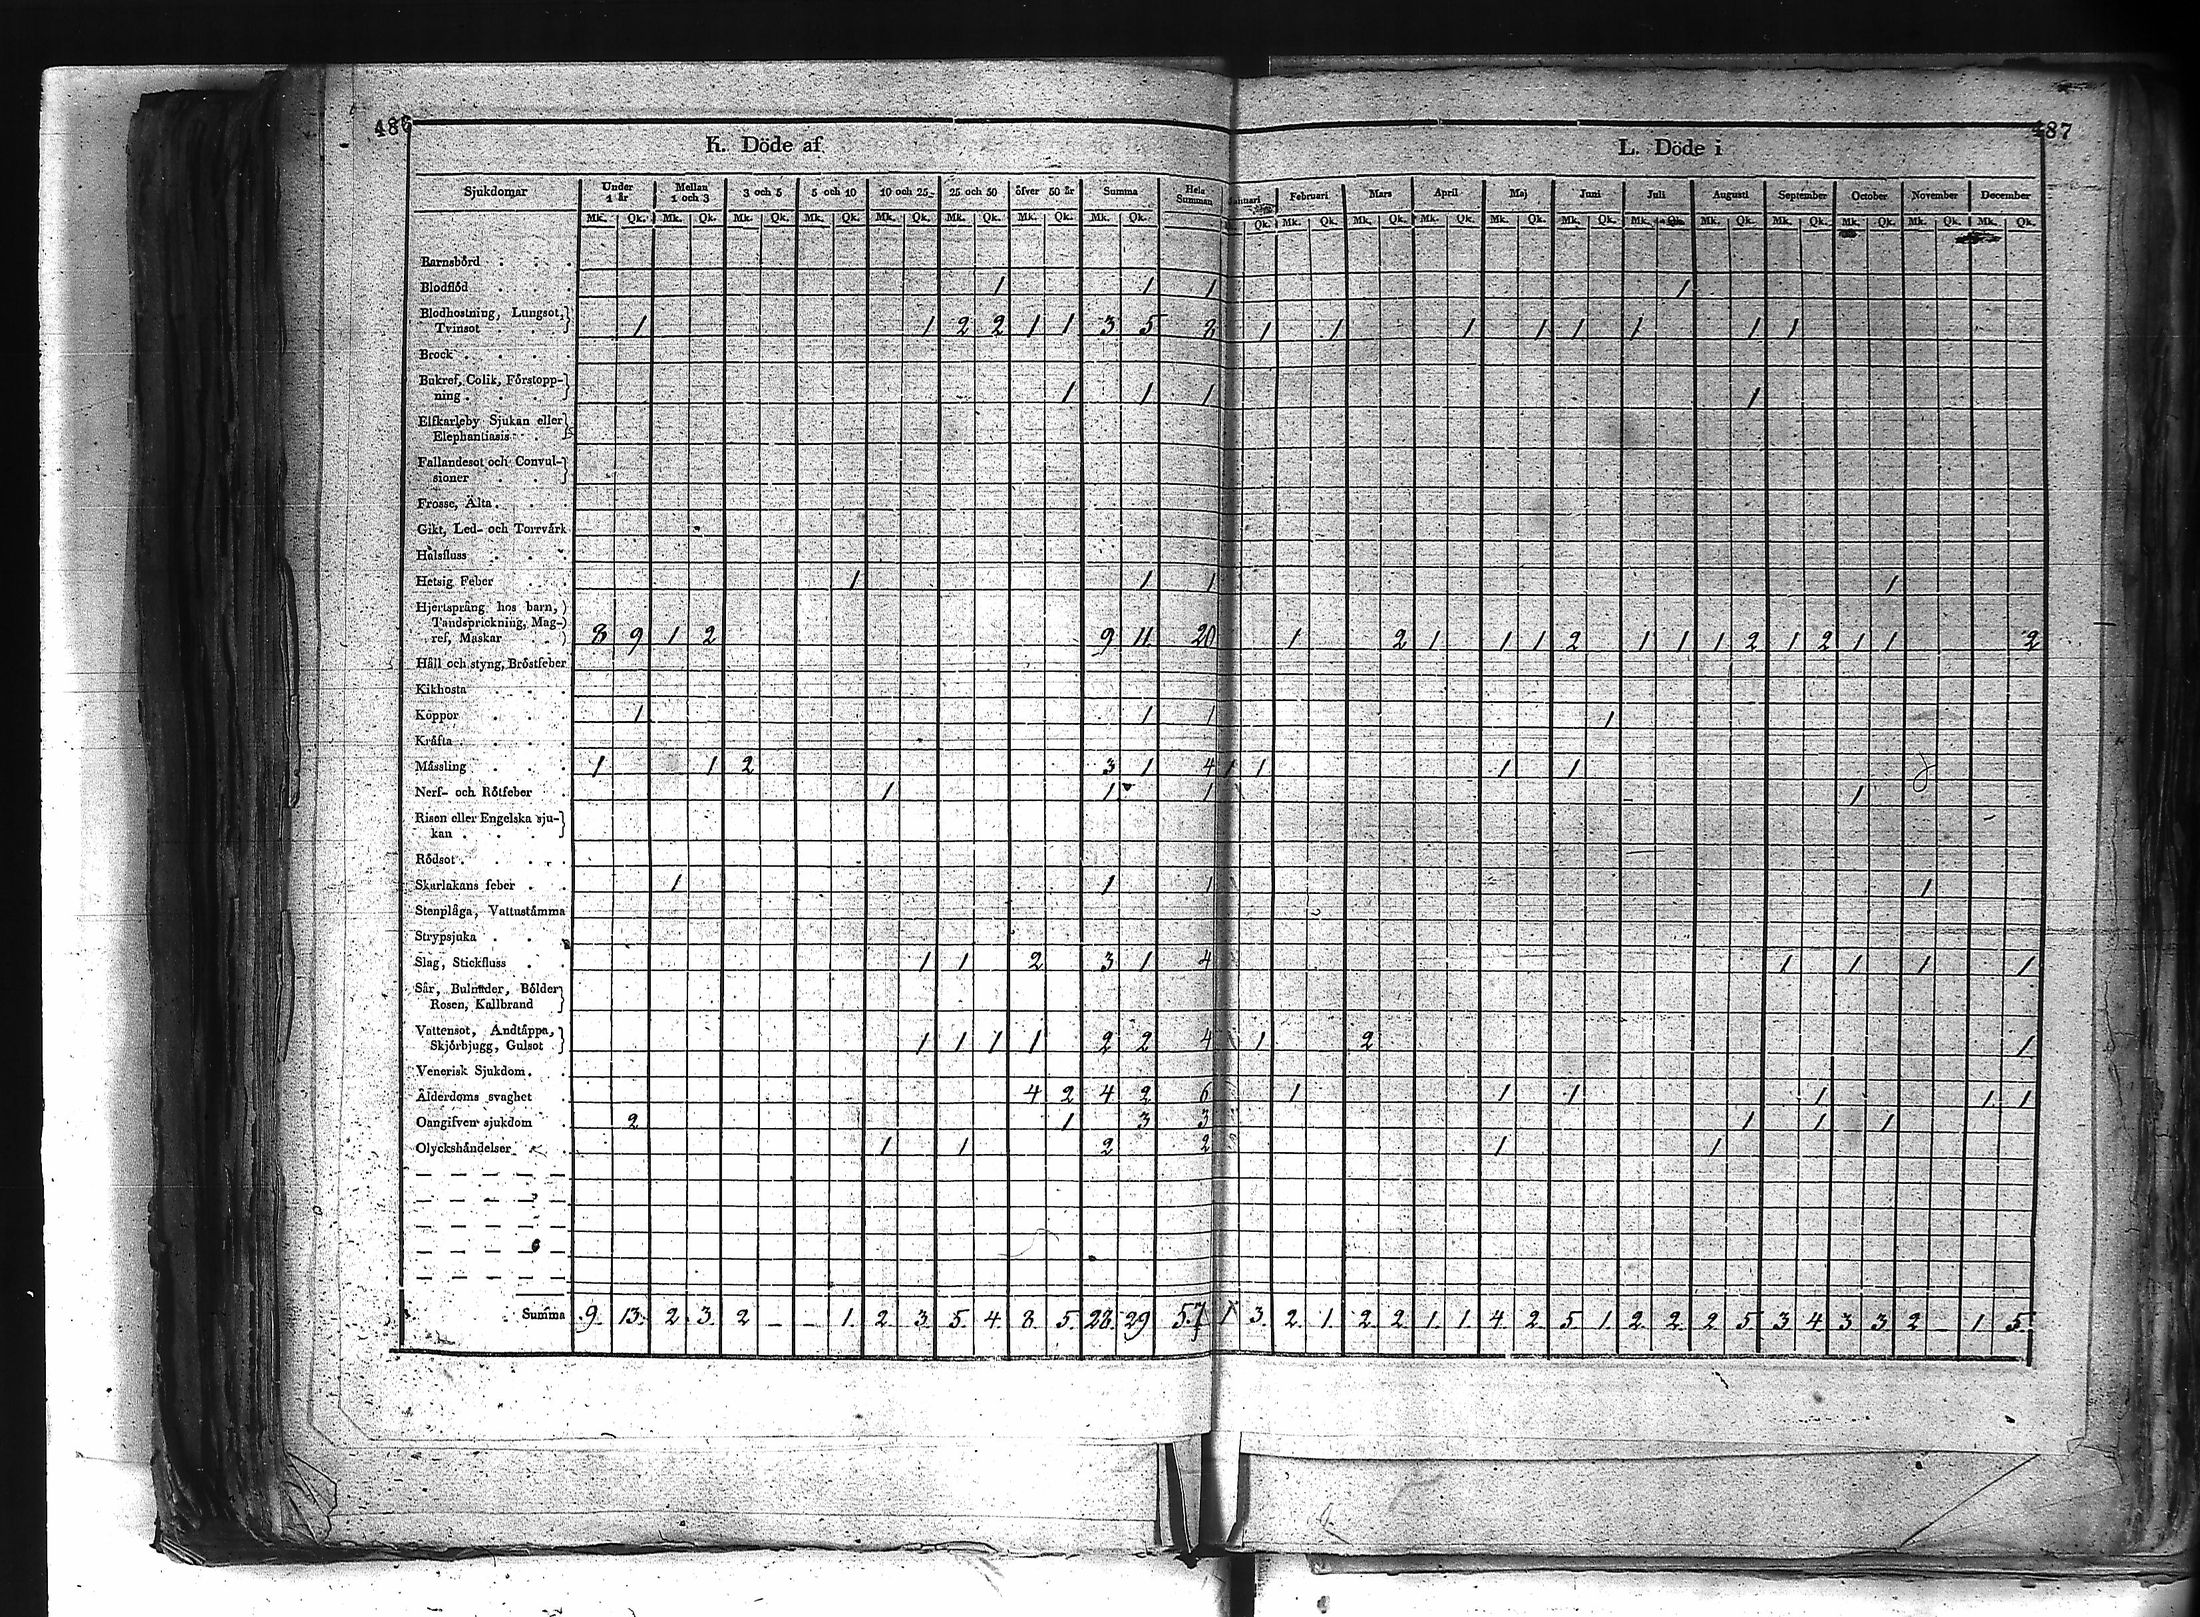 486
487
K. Döde af
L. Döde i
Sjukdomar Under 1 år Mellan 1 och 3 3 och 5 5 och 10 10 och 25 25 och 50 öfver 50 år Summa Hela Summan Januari Februari Mars April Maj Juni Juli Augusti September October November December
Mk. Qk. Mk. Qk. Mk. Qk. Mk. Qk. Mk. Qk. Mk. Qk. Mk. Qk. Mk. Qk. Qk. Mk. Qk. Mk. Qk. Mk. Qk. Mk. Qk. Mk. Qk. Mk. Qk. Mk. Qk. Mk. Qk. Mk. Qk. Mk. Qk. Mk. Qk.
Barnsbörd
Blodflöd 1 1 1 1
Blodhostning, Lungsot,
Tvinsot 1 1 2 2 1 1 3 5 8 1 1 1 1 1 1 1 1
Brock
Bukref, Colik, Förstopp-
ning 1 1 1 1
Elfkarleby Sjukan eller
Elephantiasis
Fallandesot och Convul-
sioner
Frosse, Älta
Gikt, Led- och Torrvärk
Halsfluss
Hetsig Feber 1 1 1 1
Hjertsprång hos barn,
Tandsprickning, Mag-
ref, Maskar 8 9 1 2 9 11 20 1 2 1 1 1 2 1 1 1 2 1 2 1 1 2
Håll och styng, Bröstfeber
Kikhosta
Koppor 1 1 1 1
Kräfta
Mässling 1 1 2 3 1 4 1 1 1 1
Nerf- och Rötfeber 1 1 1 1
Risen eller Engelska sju-
kan
Rödsot
Skarlakans feber 1 1 1 1
Stenplåga, Vattustämma
Strypsjuka
Slag, Stickfluss 1 1 2 3 1 4 1 1 1 1
Sår, Bulnader, Bölder
Rosen, Kallbrand
Vattensot, Andtäppa,
Skjörbjugg, Gulsot 1 1 1 1 2 2 4 1 2 1
Venerisk Sjukdom
Ålderdoms svaghet 4 2 4 2 6 1 1 1 1 1 1
Oangifven sjukdom 2 1 3 3 1 1 1
Olyckshändelser 1 1 2 2 1 1
Summa 9. 13. 2. 3. 2 – – 1. 2. 3. 5. 4. 8. 5. 28. 29 57 1 3. 2. 1. 2. 2 1. 1. 4. 2. 5. 1. 2. 2. 2 5 3. 4 3. 3. 2 – 1. 5.